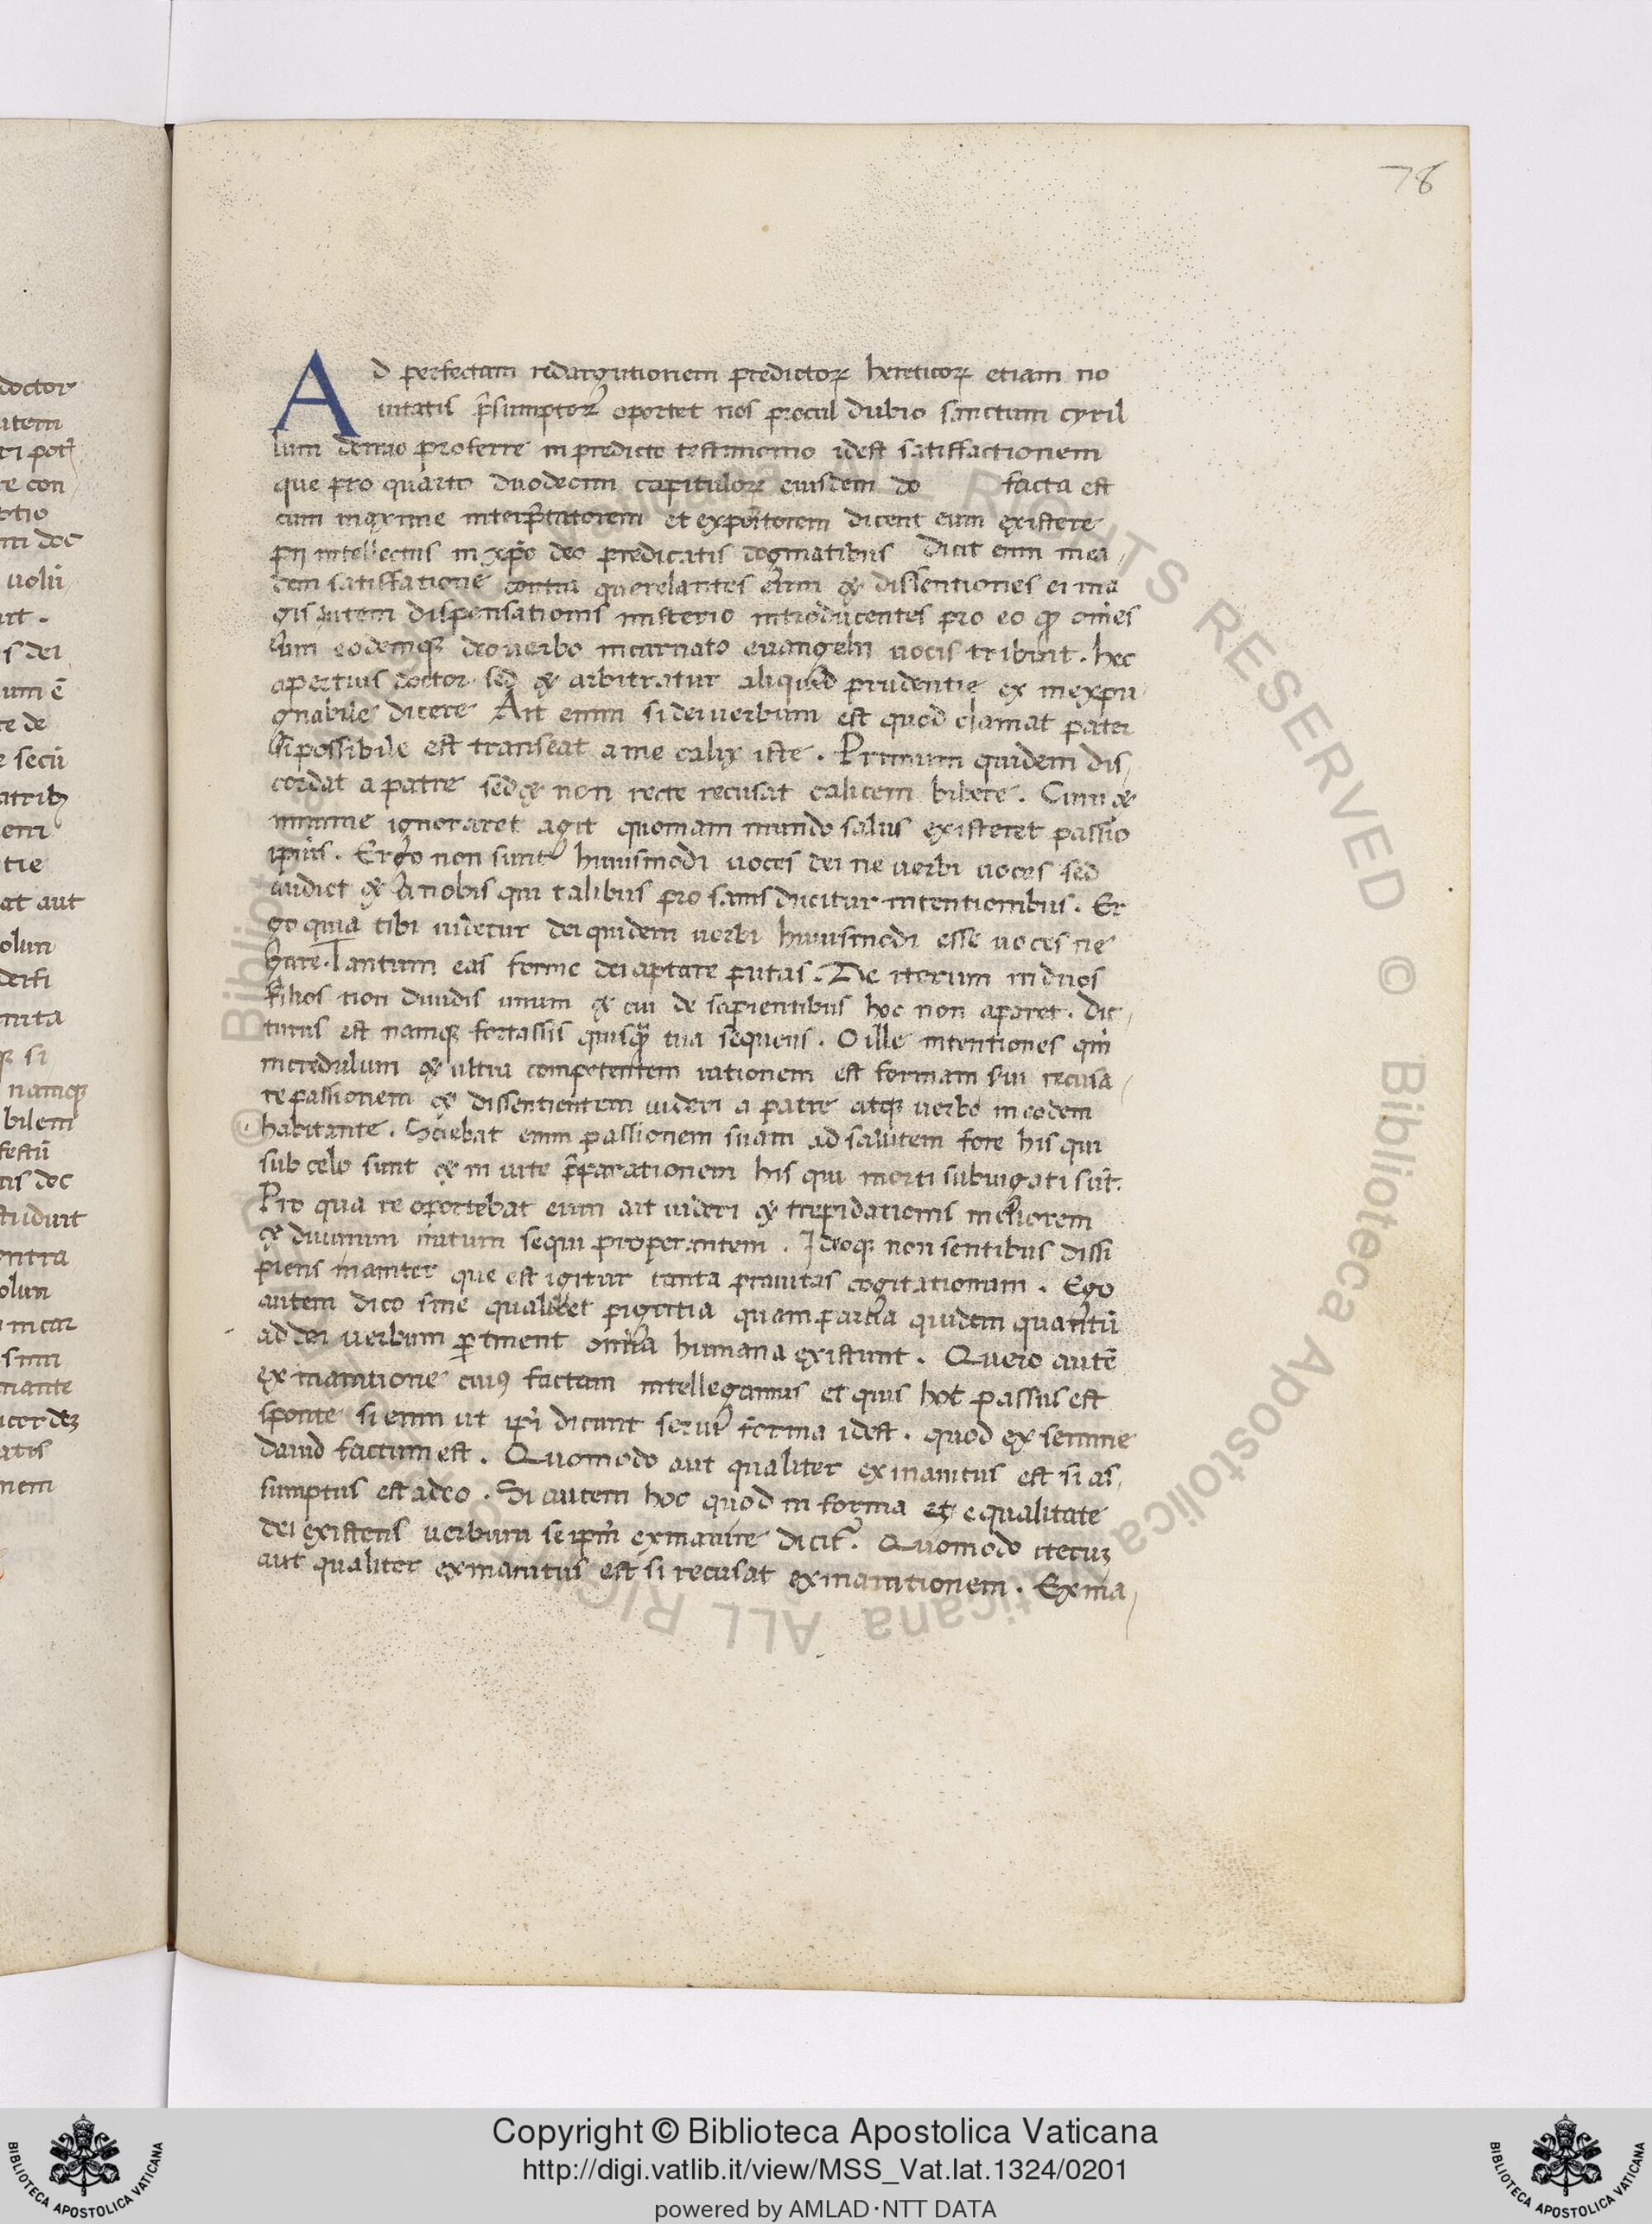 78
Ad perfectam redargutionem predictoꝝ hereticoꝝ etiam no
uitatis p̄sumptoꝝ oportet nos procul dubio sanctum cyril
lum denuo proferre in predicto testimonio idest satisfactionem
que pro quarto duodecim capituloꝝ eiusdem do facta est
cum maxime interp̄tatorem et expositorem dicent eum existere
pij intellectus in xp̄o deo predicatis dogmatibus Dicit enim in ea
dem satisfatione contra querelantes eum & dissentiones ei ma
gis autem dispensationis misterio introducentes pro eo ꝙ om̄es
eodemqꝫ deo uerbo incarnato euangelii uocis tribuit. hec
apertius doctor sed & arbitratur aliquid prudentie ex inexpu
gnabile dicere Ait enim si dei uerbum est quod clamat pater
si possibile est transeat a me calix iste. Primum quidem dis
cordat a patre sed & non recte recusat calicem bibere. Cum &
minime ignoraret agit quoniam mundo salus existeret passio
ipius. Ergo non sunt huiusmodi uoces dei ne uerbi uoces sed
audiet & a nobis qui talibus pro sanis ducitur intentionibus. Er
go quia tibi uidetur dei quidem uerbi huiusmodi esse uoces ne
Tantum eas forme dei aptare putas. De iterum in duos
filios non diuidis unum & cui de sapientibus hoc non aparet. Dic
turus est namqꝫ fortassis quisq̄ tua sequens. O ille intentiones qm̄
incredulum & ultra competentem rationem est formam sui recusa
re passionem & dissentientem uideri a patre atqꝫ uerbo in eodem
habitante. Sciebat enim passionem suam ad salutem fore his qui
sub celo sunt & in uite p̄parationem his qui morti subiugati sūt.
Pro qua re oportebat eum ait uideri & trepidationis meliorem
& diuinum nutum sequi properantem. Ideoqꝫ non sentibus dissi
piens inaniter que est igitur tanta prauitas cogitationum. Ego
autem dico sine qualibet pigritia quam parua quidem quantū
ad dei uerbum ꝑtinent omnia humana existunt. Quero autē
exinanitione cuiꝰ factam intellegamus et quis hoc passus est
sponte si enim ut ip̄i dicunt serui forma idest. quod ex semine
dauid factum est. Quomodo aut qualiter exinanitus est si as
sumptus est a deo. Si autem hoc quod in forma et equalitate
dei existens uerbum se ipm̄ exinanire dicit. Quomodo iteruꝫ
aut qualiter exinanitus est si recusat exinanitionem. Exina
doctor
utem
re con
ptio
m doc
uolū
s dei
um ē
re de
secū
tie
at aut
olun
nita
namqꝫ
bilem
festū
tis doc
studuit
ontra
olun
incar
sum
mante
atis
nem
© Biblioteca Apostolica Vaticana ALL RIGHTS RESERVED
Copyright © Biblioteca Apostolica Vaticana
http://digi.vatlib.it/view/MSS_Vat.lat.1324/0201
powered by AMLAD·NTT DATA
BIBLIOTECA APOSTOLICA VATICANA
BIBLIOTECA APOSTOLICA VATICANA